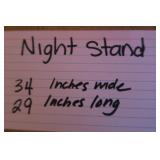 Night Stand
34 Inches wide
29 Inches long